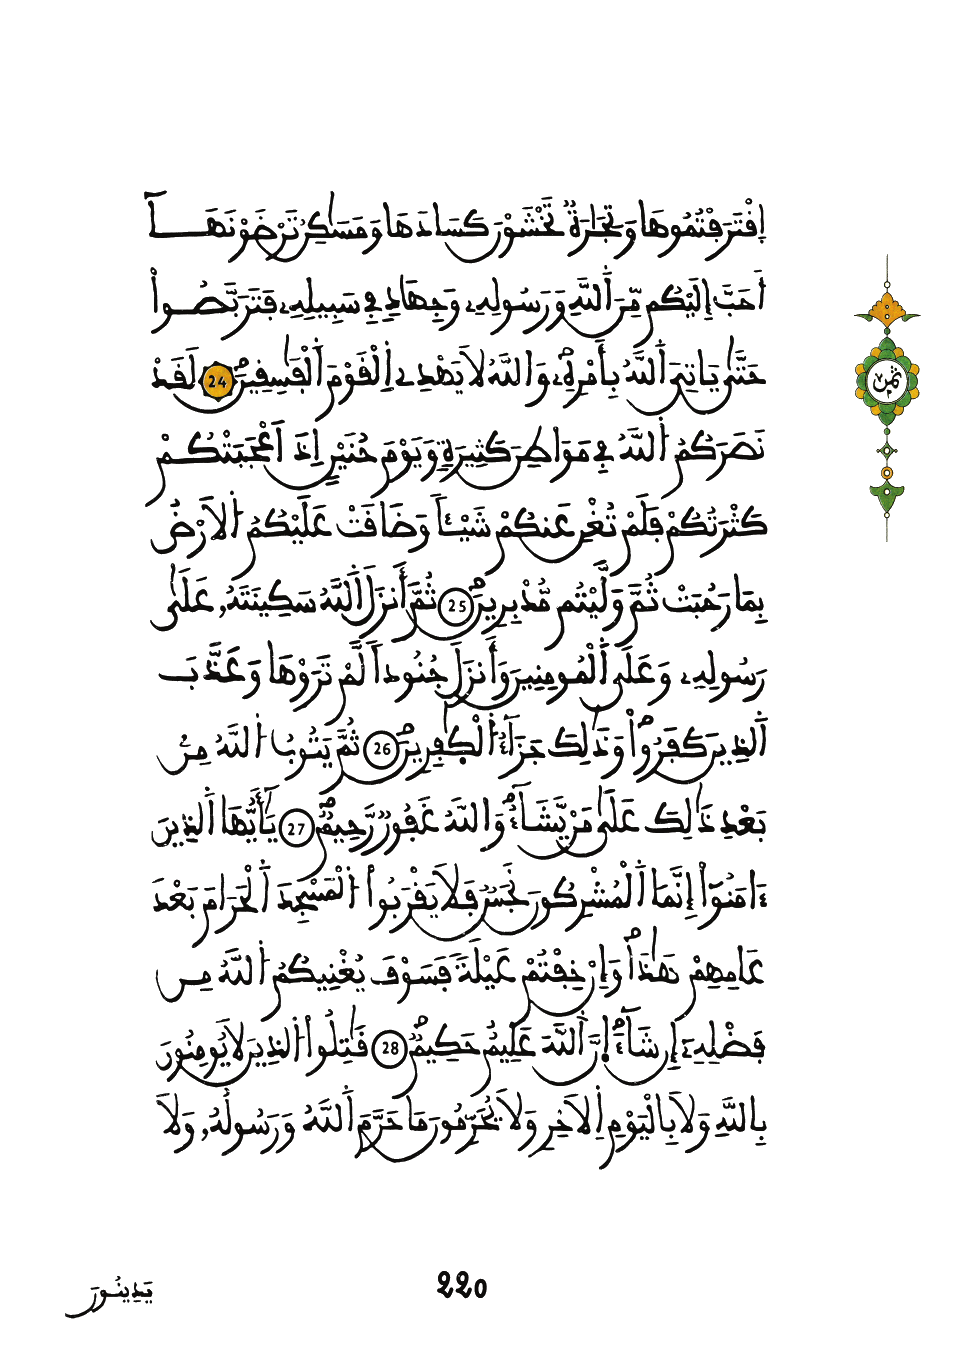 اِ۪فْتَرَفْتُمُوهَا وَتِجَٰرَةٞ تَخْشَوْنَ كَسَادَهَا وَمَسَٰكِنُ تَرْضَوْنَهَآ
أَحَبَّ إِلَيْكُم مِّنَ اَ۬للَّهِ وَرَسُولِهِۦ وَجِهَادٖ فِے سَبِيلِهِۦ فَتَرَبَّصُواْ
حَتَّىٰ يَاتِيَ اَ۬للَّهُ بِأَمْرِهِۦۖ وَاللَّهُ لَا يَهْدِے اِ۬لْقَوْمَ اَ۬لْفَٰسِفِينَۖ 24 لَقَدْ
نَصَرَكُمُ اُ۬للَّهُ فِے مَوَاطِنَ كَثِيرَةٖ وَيَوْمَ حُنَيْنٍ اِذَ اَعْجَبَتْكُمْ
كَثْرَتُكُمْ فَلَمْ تُغْنِ عَنكُمْ شَيْـٔاٗ وَضَاقَتْ عَلَيْكُمُ اُ۬لَارْضُ
بِمَا رَحُبَتْ ثُمَّ وَلَّيْتُم مُّدْبِرِينَۖ 25 ثُمَّ أَنزَلَ اَ۬للَّهُ سَكِينَتَهُۥ عَلَىٰ
رَسُولِهِۦ وَعَلَى اَ۬لْمُومِنِينَ وَأَنزَلَ جُنُوداٗ لَّمْ تَرَوْهَا وَعَذَّبَ
اَ۬لذِينَ كَفَرُواْۖ وَذَٰلِكَ جَزَآءُ اُ۬لْكٰ۪فِرِينَۖ 26 ثُمَّ يَتُوبُ اُ۬للَّهُ مِنۢ
بَعْدِ ذَٰلِكَ عَلَىٰ مَنْ يَّشَآءُۖ وَاللَّهُ غَفُورٞ رَّحِيمٞۖ 27 يَٰٓأَيُّهَا اَ۬لذِينَ
ءَامَنُوٓاْ إِنَّمَا اَ۬لْمُشْرِكُونَ نَجَسٞ فَلَا يَقْرَبُواْ اُ۬لْمَسْجِدَ اَ۬لْحَرَامَ بَعْدَ
عَامِهِمْ هَٰذَاۖ وَإِنْ خِفْتُمْ عَيْلَةٗ فَسَوْفَ يُغْنِيكُمُ اُ۬للَّهُ مِن
فَضْلِهِۦٓ إِن شَآءَۖ اِ۪نَّ اَ۬للَّهَ عَلِيمٌ حَكِيمٞۖ 28 قَٰتِلُواْ اُ۬لذِينَ لَا يُومِنُونَ
بِاللَّهِ وَلَا بِالْيَوْمِ اِ۬لَاخِرِ وَلَا يُحَرِّمُونَ مَا حَرَّمَ اَ۬للَّهُ وَرَسُولُهُۥ وَلَا
ثمن
يَدِينُونَ
220